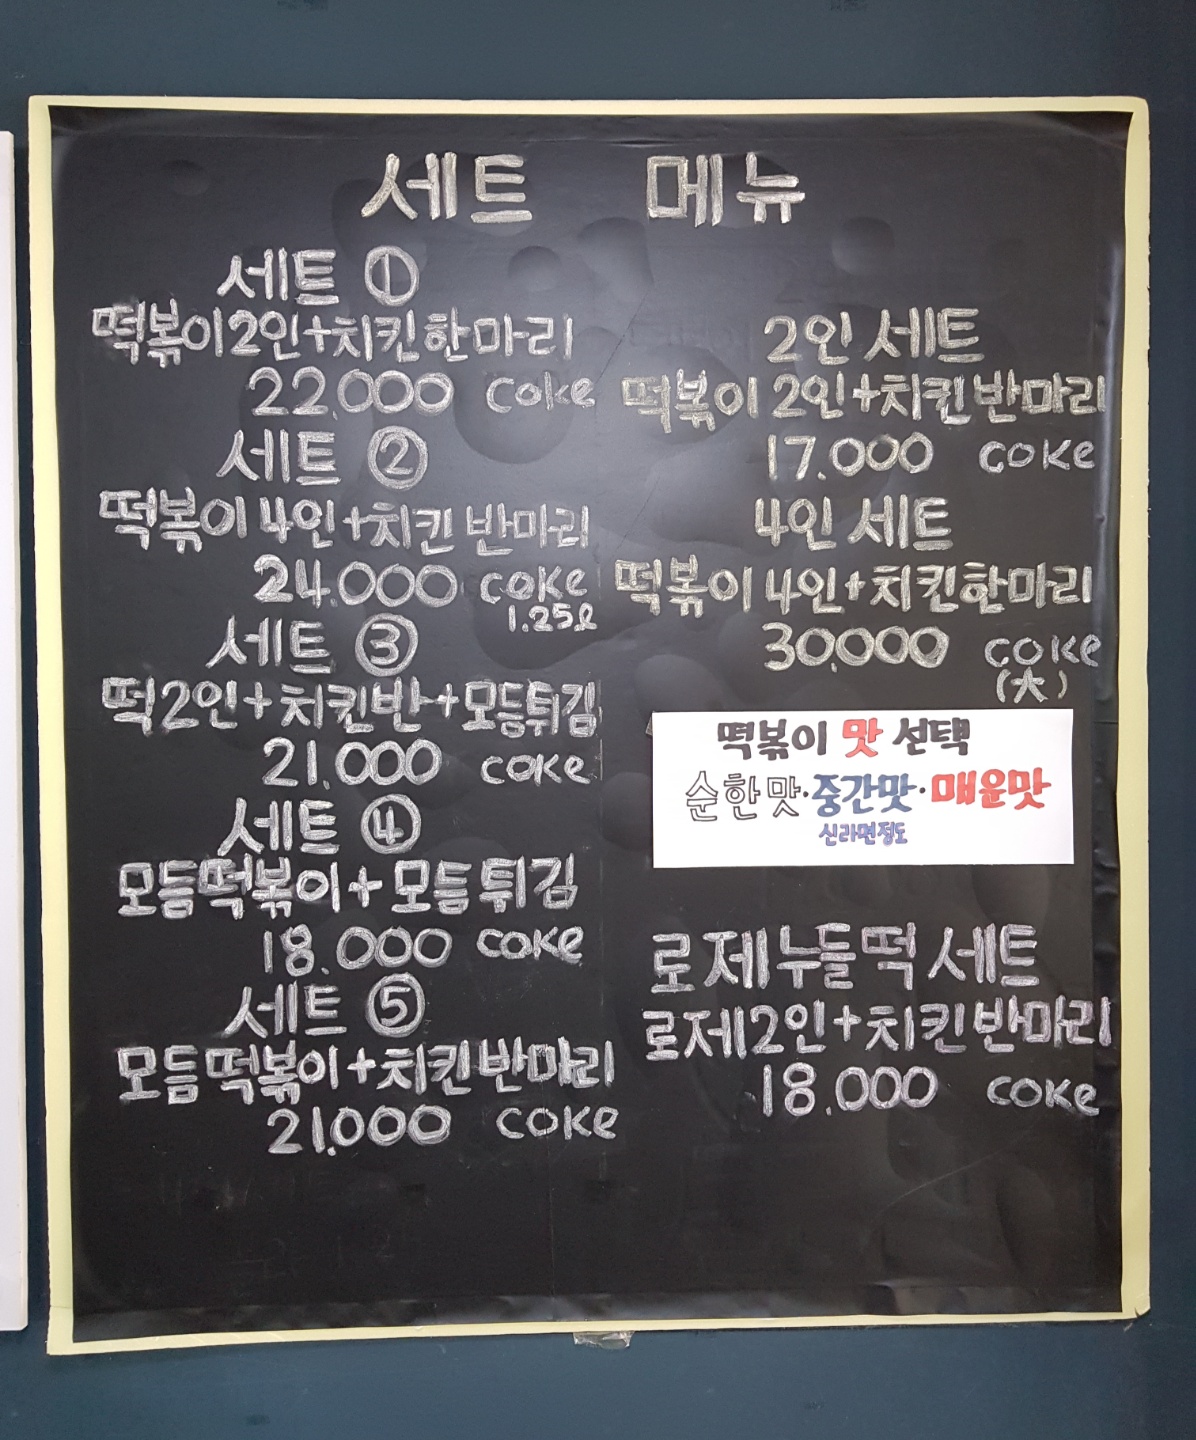 세트 메뉴
세트 ①
떡볶이2인+치킨한마리
22.000 coke
세트 ②
떡볶이 4인+치킨 반마리
24.000 coke
1.25ℓ
세트 ③
떡2인+치킨반+모듬튀김
21.000 coke
세트 ④
모듬떡볶이+모듬튀김
18.000 coke
세트 ⑤
모듬떡볶이+치킨반마리
21.000 coke
2인 세트
떡볶이 2인+치킨반마리
17.000 coke
4인 세트
떡볶이 4인+치킨한마리
30.000 coke
(大)
떡볶이 맛 선택
순한맛·중간맛·매운맛
신라면정도
로제누들떡 세트
로제2인+치킨반마리
18.000 coke